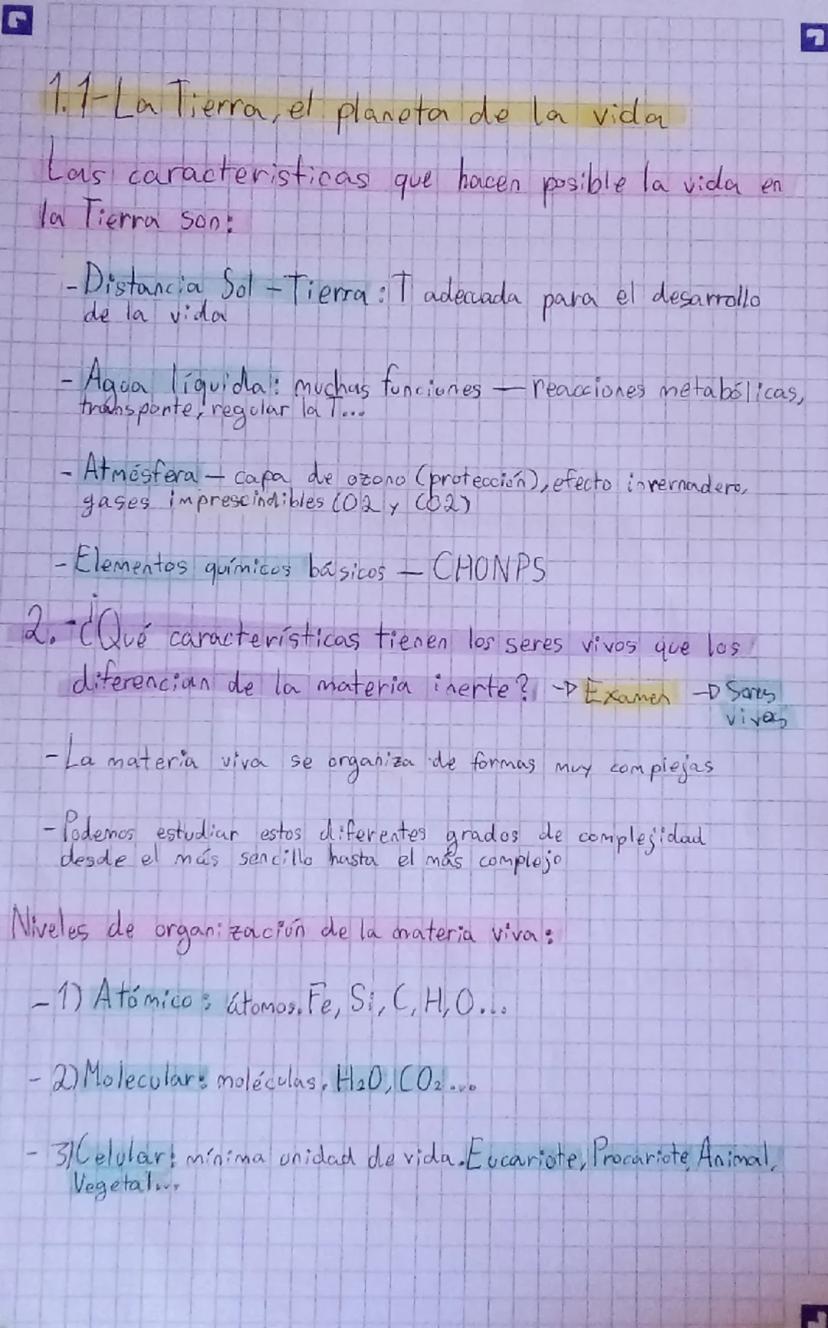 1.1-La Tierra, el planeta de la vida
Las características que hacen posible la vida en
la Tierra son:
- Distancia Sol - Tierra: T adecuada para el desarrollo
de la vida
- Agua líquida: muchas funciones — reacciones metabólicas,
transporte, regular la T...
- Atmósfera — capa de ozono (protección), efecto invernadero,
gases imprescindibles (O2 y CO2)
- Elementos químicos básicos — CHONPS
2. - ¿Qué características tienen los seres vivos que los
diferencian de la materia inerte? → Examen → Seres
vivos
- La materia viva se organiza de formas muy complejas
- Podemos estudiar estos diferentes grados de complejidad
desde el más sencillo hasta el más complejo
Niveles de organización de la materia viva:
- 1) Atómico: átomos. Fe, Si, C, H, O...
- 2) Molecular: moléculas. H2O, CO2...
- 3) Celular: mínima unidad de vida. Eucariote, Procariote, Animal,
Vegetal...